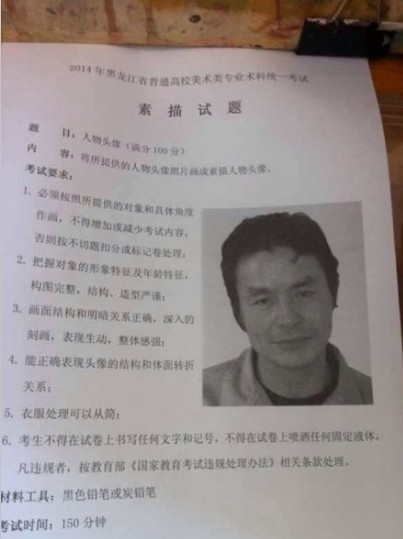 2014年黑龙江省普通高校美术类专业术科统一考试
素 描 试 题
题 目：人物头像（满分100分）
内 容：将所提供的人物头像照片画成素描人物头像。
考试要求：
1. 必须按照所提供的对象和具体角度
作画，不得增加或减少考试内容，
否则按不切题扣分或标记卷处理；
2. 把握对象的形象特征及年龄特征，
构图完整，结构、造型严谨；
3. 画面结构和明暗关系正确，深入的
刻画，表现生动，整体感强；
4. 能正确表现头像的结构和体面转折
关系；
5. 衣服处理可以从简；
6. 考生不得在试卷上书写任何文字和记号，不得在试卷上喷洒任何固定液体，
凡违规者，按教育部《国家教育考试违规处理办法》相关条款处理。
材料工具：黑色铅笔或炭铅笔
考试时间：150分钟